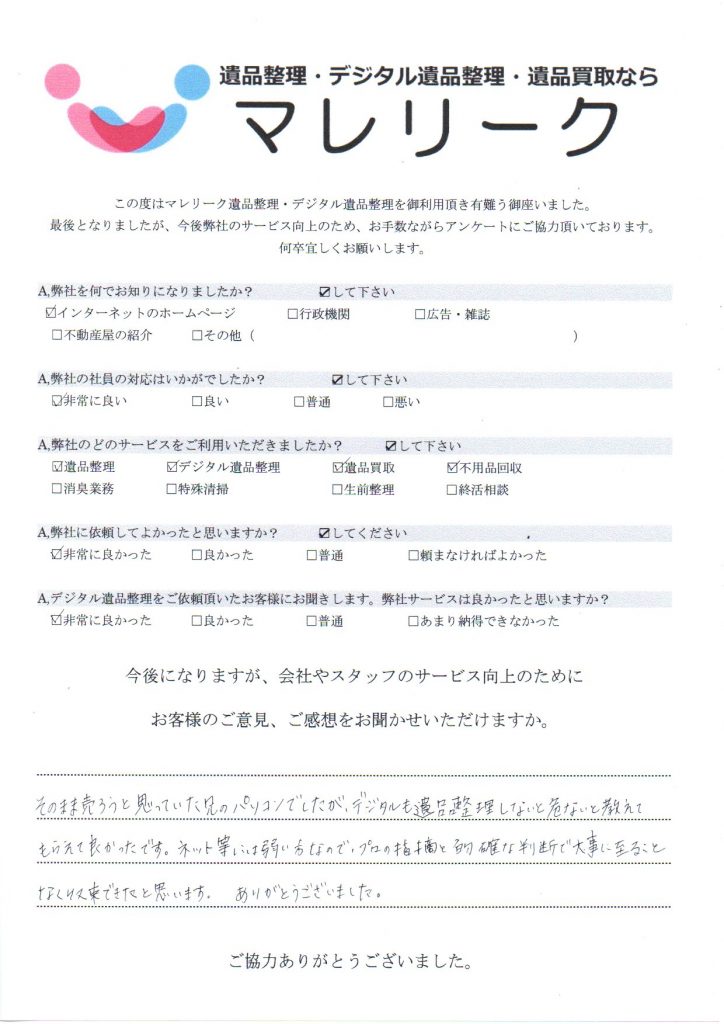 遺品整理・デジタル遺品整理・遺品買取なら
マレリーク
この度はマレリーク遺品整理・デジタル遺品整理を御利用頂き有難う御座いました。
最後となりましたが、今後弊社のサービス向上のため、お手数ながらアンケートにご協力頂いております。
何卒宜しくお願いします。
A,弊社を何でお知りになりましたか？ ☑して下さい
☑インターネットのホームページ □行政機関 □広告・雑誌
□不動産屋の紹介 □その他（ ）
A,弊社の社員の対応はいかがでしたか？ ☑して下さい
☑非常に良い □良い □普通 □悪い
A,弊社のどのサービスをご利用いただきましたか？ ☑して下さい
☑遺品整理 ☑デジタル遺品整理 ☑遺品買取 ☑不用品回収
□消臭業務 □特殊清掃 □生前整理 □終活相談
A,弊社に依頼してよかったと思いますか？ ☑してください
☑非常に良かった □良かった □普通 □頼まなければよかった
A,デジタル遺品整理をご依頼頂いたお客様にお聞きします。弊社サービスは良かったと思いますか？
☑非常に良かった □良かった □普通 □あまり納得できなかった
今後になりますが、会社やスタッフのサービス向上のために
お客様のご意見、ご感想をお聞かせいただけますか。
そのまま売ろうと思っていた兄のパソコンでしたが、デジタルも遺品整理しないと危ないと教えて
もらえて良かったです。ネット等には弱い方なので、プロの指摘と的確な判断で大事に至ること
なく収束できたと思います。 ありがとうございました。
ご協力ありがとうございました。